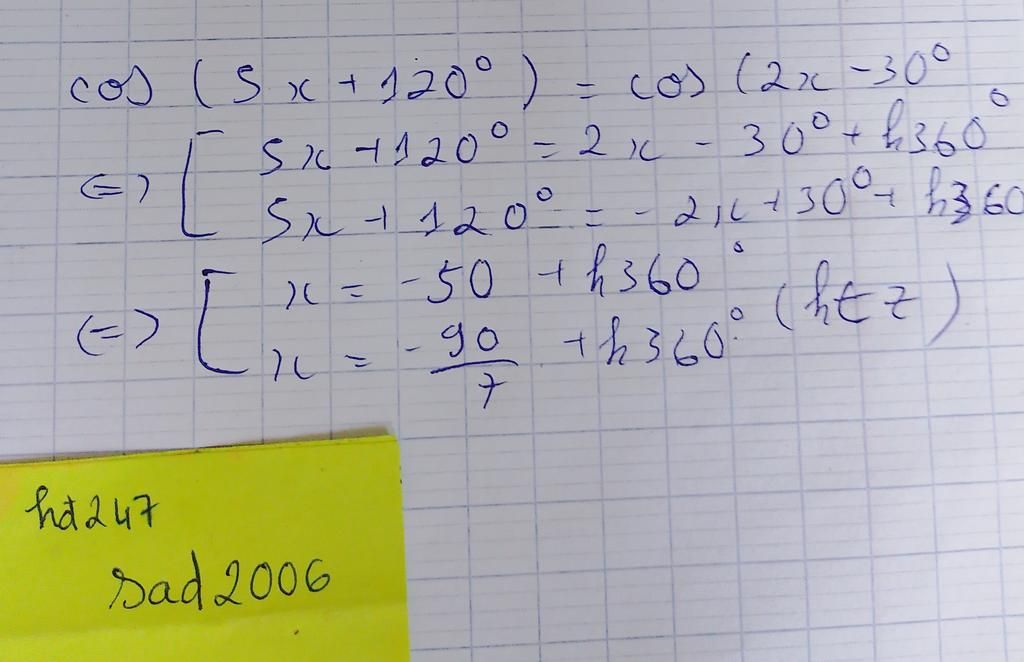 cos (5x + 120°) = cos (2x - 30°
<=> [ 5x + 120° = 2x - 30° + h360°
5x + 120° = - 2x + 30° + h360
<=> [ x = -50 + h360°
x = - 90/7 + h360° (h ∈ Z)
hd247
sad2006